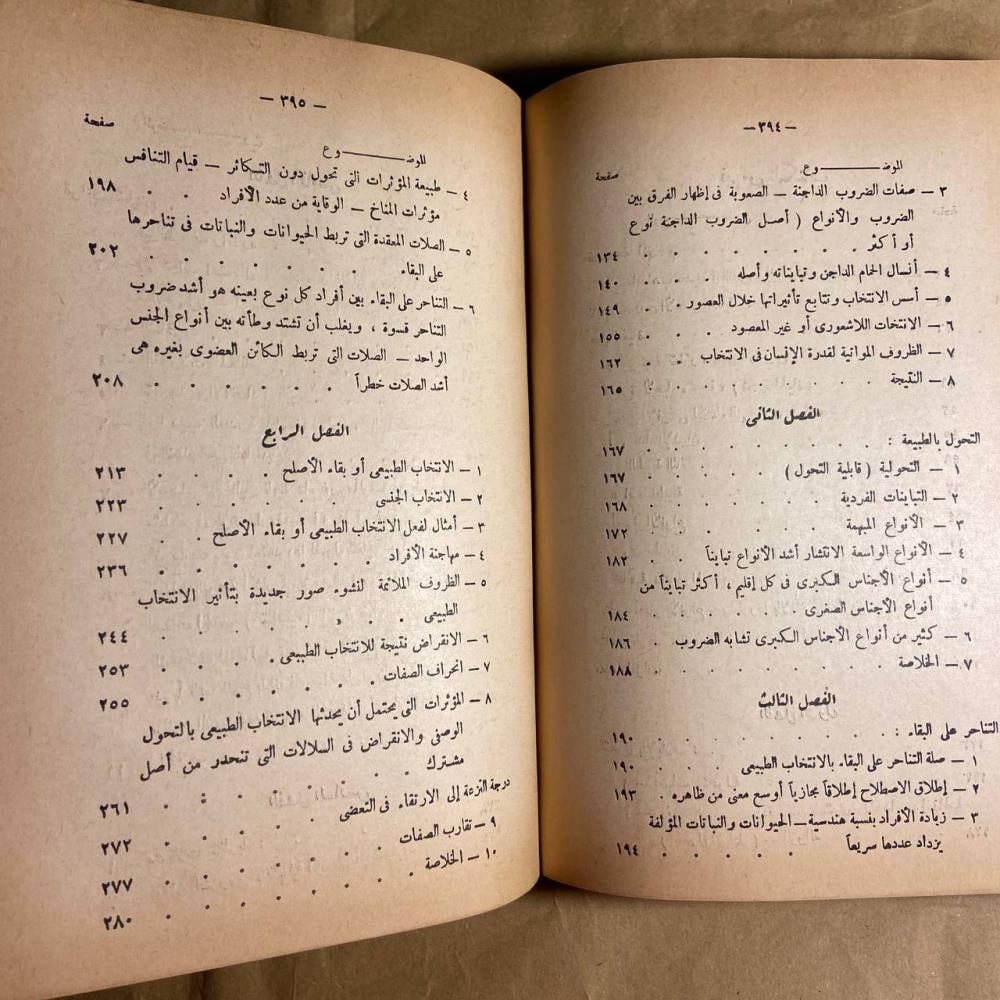 — ٣٩٤ —
الموضــــــوع
صفحة
٣ — صفات الضروب الداجنة — الصعوبة فى إظهار الفرق بين
الضروب والأنواع ( أصل الضروب الداجنة نوع
أو أكثر . . . . . . . . ١٣٤
٤ — أنسال الحمام الداجن وتبايناته وأصله . . . ١٤٠
٥ — أسس الانتخاب وتتابع تأثيراتها خلال العصور . . ١٤٩
٦ — الانتخات اللاشعورى أو غير المعصود . . . ١٥٥
٧ — الظروف المواتية لقدرة الإنسان فى الانتخاب . . ١٦٢
٨ — النتيجة . . . . . . . . ١٦٥
الفصل الثانى
التحول بالطبيعة : . . . . . . . ١٦٧
١ — التحولية ( قابلية التحول ) . . . . ١٦٧
٢ — التباينات الفردية . . . . . . ١٦٨
٣ — الأنواع المبهمة . . . . . . ١٧٢
٤ — الأنواع الواسعة الانتشار أشد الأنواع تبايناً . ١٨٢
٥ — أنواع الأجناس الكبرى فى كل إقليم ، أكثر تبايناً من
أنواع الأجناس الصغرى . . . . . ١٨٤
٦ — كثير من أنواع الأجناس الكبرى تشابه الضروب . ١٨٦
٧ — الخلاصة . . . . . . . . ١٨٨
الفصل الثالث
التناحر على البقاء : . . . . . . . ١٩٠
١ — صلة التناحر على البقاء بالانتخاب الطبيعى . . ١٩٠
٢ — إطلاق الاصطلاح إطلاقاً مجازياً أوسع معنى من ظاهره . ١٩٣
٣ — زيادة الأفراد بنسبة هندسية — الحيوانات والنباتات المؤلفة
يزداد عددها سريعاً . . . . . ١٩٤
— ٣٩٥ —
الموضــــــوع
صفحة
٤ — طبيعة المؤثرات التى تحول دون التكاثر — قيام التنافس
مؤثرات المناخ — الوقاية من عدد الأفراد . . ١٩٨
٥ — الصلات المعقدة التى تربط الحيوانات والنباتات فى تناحرها
على البقاء . . . . . . . ٢٠٢
٦ — التناحر على البقاء بين أفراد كل نوع بعينه هو أشد ضروب
التناحر قسوة ، ويغلب أن تشتد وطأته بين أنواع الجنس
الواحد — الصلات التى تربط الكائن العضوى بغيره هى
أشد الصلات خطراً . . . . . . ٢٠٨
الفصل الرابع
١ — الانتخاب الطبيعى أو بقاء الأصلح . . . . ٢١٣
٢ — الانتخاب الجنسى . . . . . . ٢٢٣
٣ — أمثال لفعل الانتخاب الطبيعى أو بقاء الأصلح . . ٢٢٧
٤ — مهاجنة الأفراد . . . . . . . ٢٣٦
٥ — الظروف الملائمة لنشوء صور جديدة بتأثير الانتخاب
الطبيعى . . . . . . . ٢٤٤
٦ — الانقراض نتيجة للانتخاب الطبيعى . . . . ٢٥٣
٧ — انحراف الصفات . . . . . . . ٢٥٥
٨ — المؤثرات التى يحتمل أن يحدثها الانتخاب الطبيعى بالتحول
الوصفى والانقراض فى السلالات التى تنحدر من أصل
مشترك . . . . . . . . ٢٦١
درجة النزعة إلى الارتقاء فى التعضى . . . . ٢٧٢
٩ — تقارب الصفات . . . . . . . ٢٧٧
١٠ — الخلاصة . . . . . . . . ٢٨٠